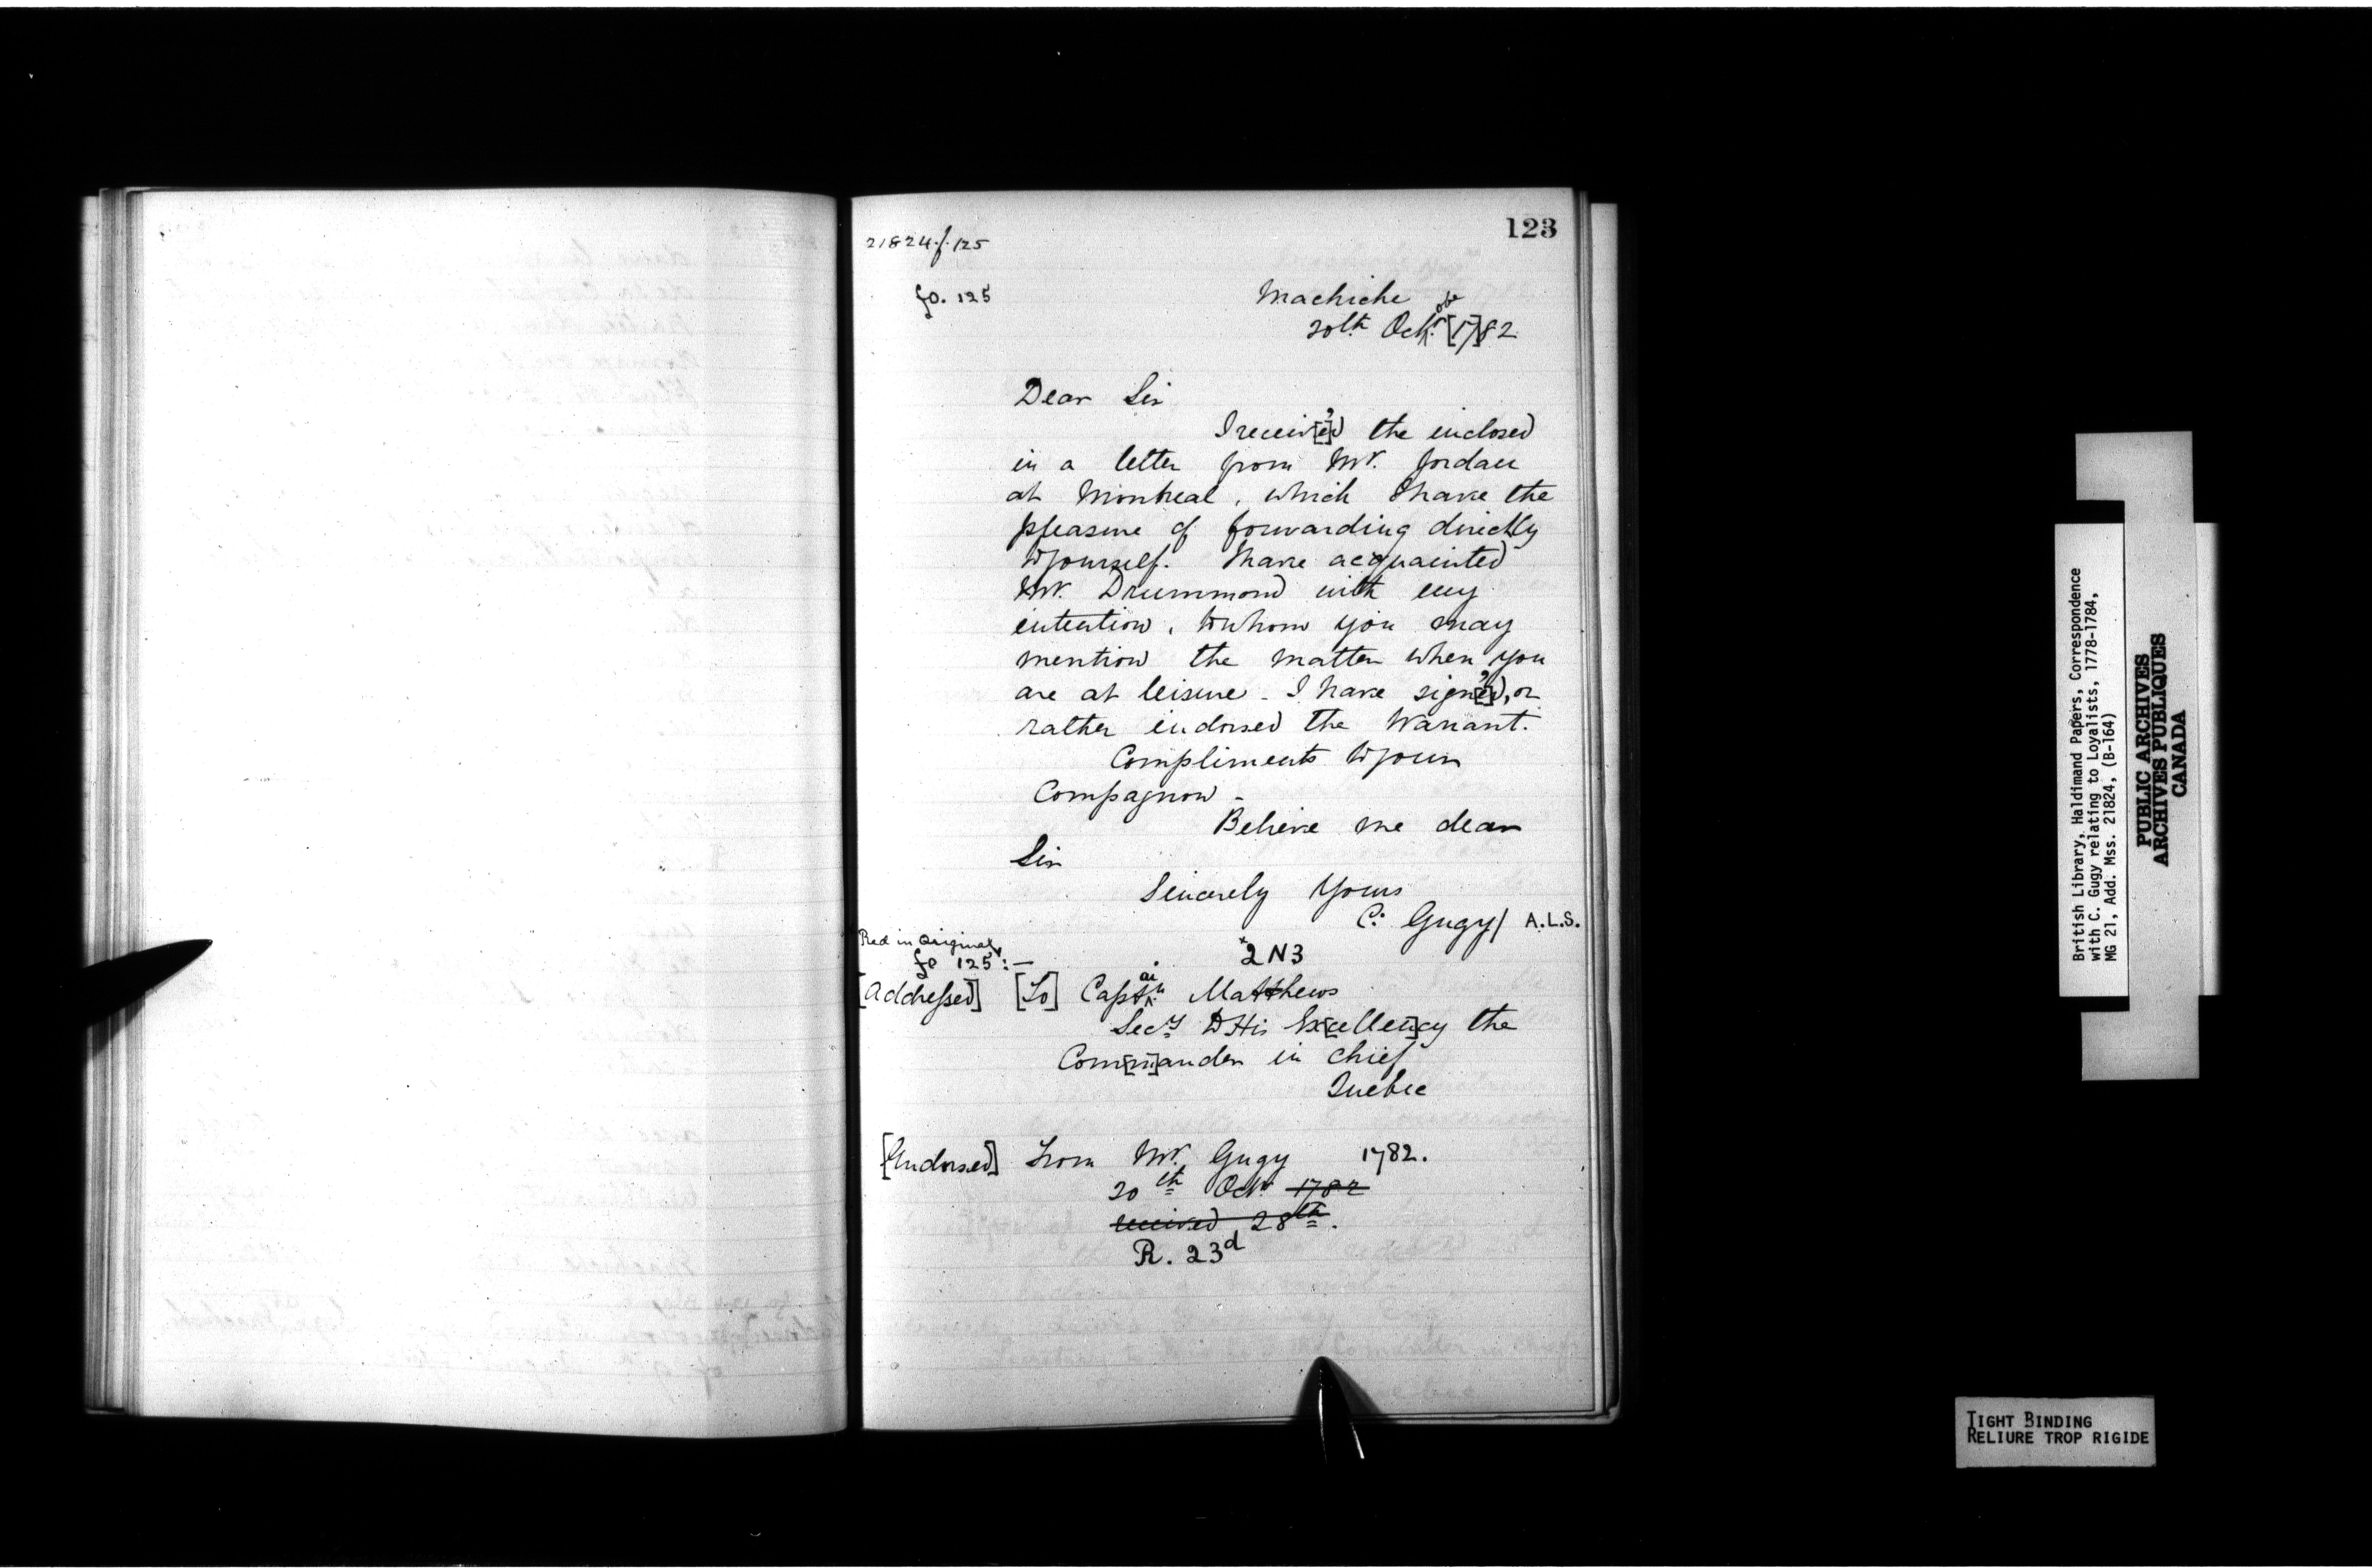 123
21824.f.125
fo. 125
Machiche
20th Octobr [17]82
Dear Sir
I receiv'[e]d the inclosed
in a letter from Mr. Jordan
at Montreal, which I have the
pleasure of forwarding directly
to yourself. I have acquainted
Mr. Drummond with my
intention, to whom you may
mention the matter when you
are at leisure - I have sign'[e]d, or
rather endorsed the Warrant.
Compliments to your
Compagnon -
Believe me dear
Sir
Sincerely Yours
C: Gugy/ A.L.S.
Red in Original
fo 125:-
2N3
[Addressed] [To] Captain Matthews
Secy to His Ex[cellen]cy the
Com[m]ander in Chief
Quebec
[Endorsed] From Mr. Gugy 1782.
20th Octr 1782
received 28th.
R. 23d
British Library, Haldimand Papers, Correspondence
with C. Gugy relating to Loyalists, 1778-1784,
MG 21, Add. Mss. 21824, (B-164)
PUBLIC ARCHIVES
ARCHIVES PUBLIQUES
CANADA
TIGHT BINDING
RELIURE TROP RIGIDE